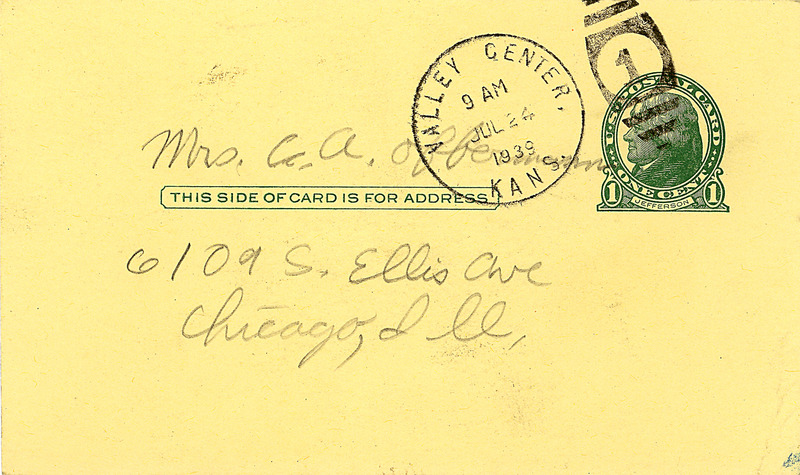 VALLEY CENTER,
9 AM
JUL 24
1939
KANS.
1
U.S. POSTAL CARD
ONE CENT
1 JEFFERSON 1
Mrs. C. A.
THIS SIDE OF CARD IS FOR ADDRESS
6109 S. Ellis Ave
Chicago, Ill,